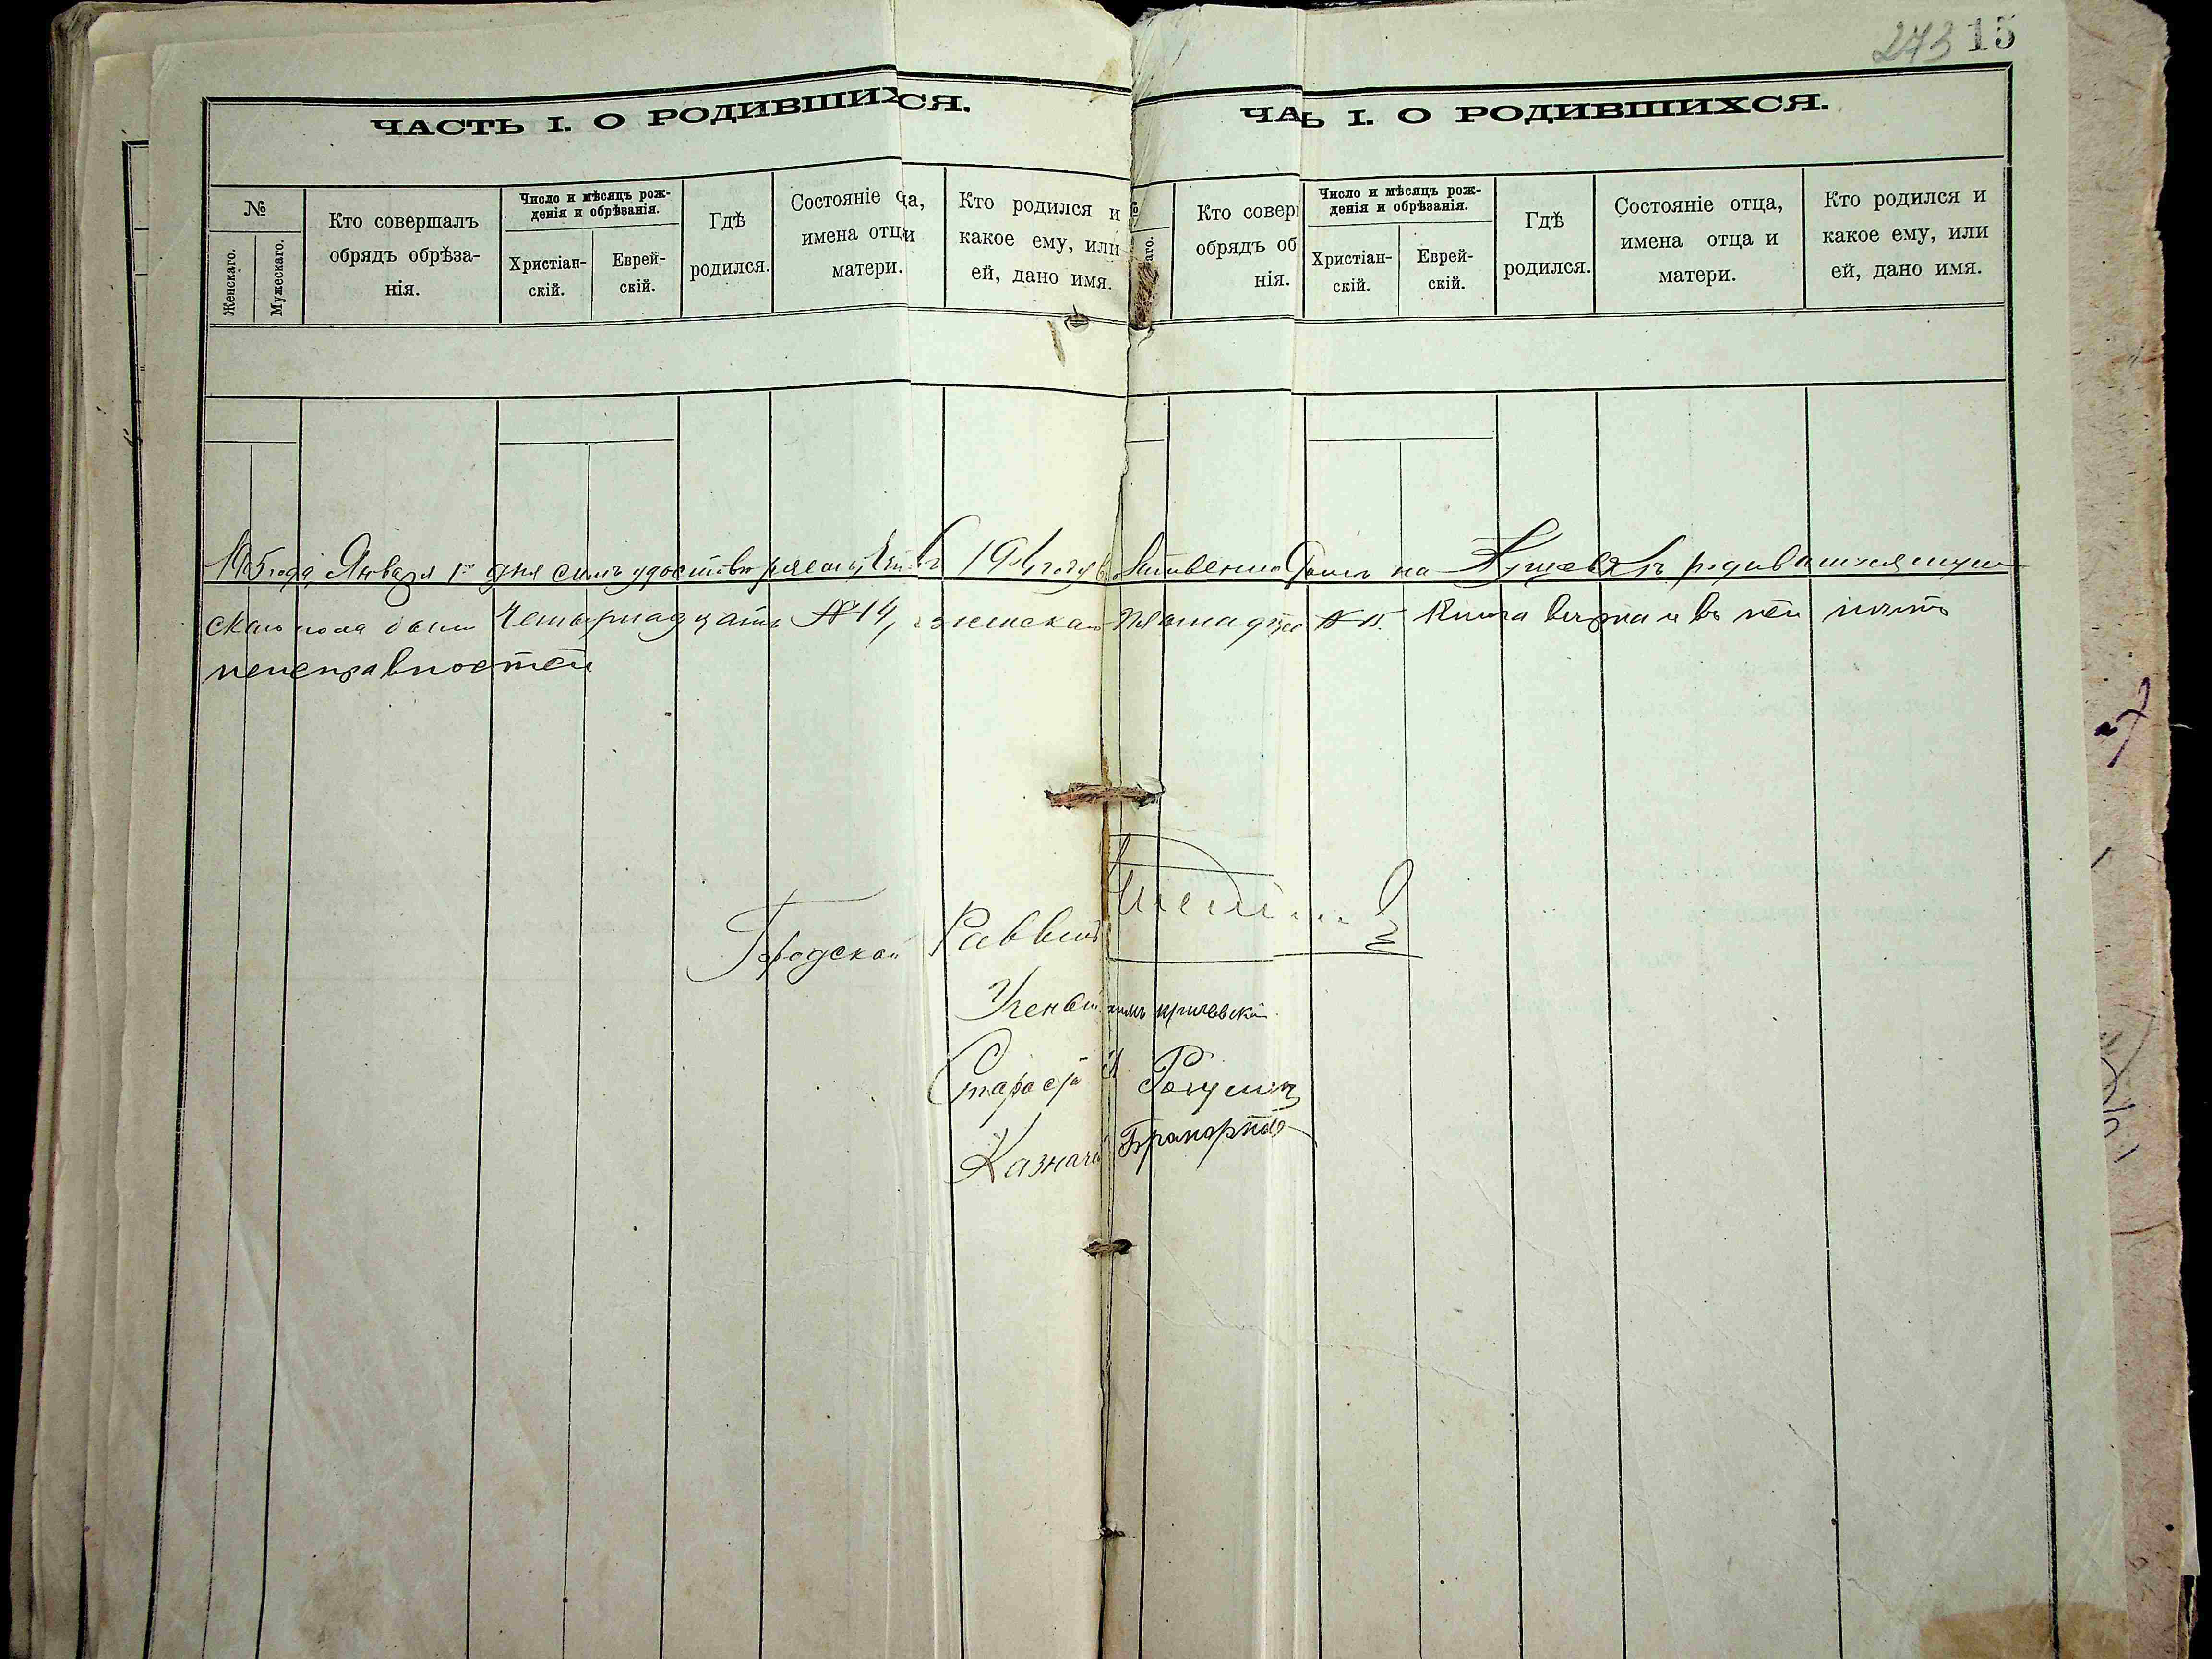 273 15
ЧАСТЬ I. О РОДИВШИХСЯ.
№
Женскаго.
Мужескаго.
Кто совершалъ
обрядъ обрѣза-
нія.
Число и мѣсяцъ рож-
денія и обрѣзанія.
Христіан-
скій.
Еврей-
скій.
Гдѣ
родился.
Состояніе ца,
имена отци
матери.
Кто родился и
какое ему, или
ей, дано имя.
ЧАЬ I. О РОДИВШИХСЯ.
аго.
Кто совер
обрядъ об
нія.
Число и мѣсяцъ рож-
денія и обрѣзанія.
Христіан-
скій.
Еврей-
скій.
Гдѣ
родился.
Состояніе отца,
имена отца и
матери.
Кто родился и
какое ему, или
ей, дано имя.
1905 года Января 1го дня симъ удостовѣряемъ 1904 года на родившихся муж
скаго пола были четырнадцать №14, женскаго пятнадцать №15. Книга вѣрна и въ ней нѣтъ
неисправностей
Городской Раввинъ
Ученый
Староста
Казначей